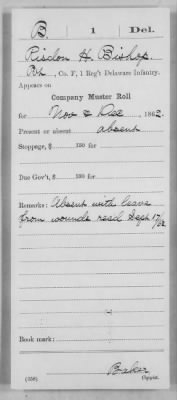 B | 1 | Del.
Risdon H. Bishop
Pvt, Co. F, 1 Reg't Delaware Infantry.
Appears on
Company Muster Roll
for Nov & Dec, 1862.
Present or absent absent
Stoppage, $ 100 for
Due Gov't, $ 100 for
Remarks: Absent with leave
from wounds recd Sept 17/62
Book mark:
(358)
Baker
Copyist.